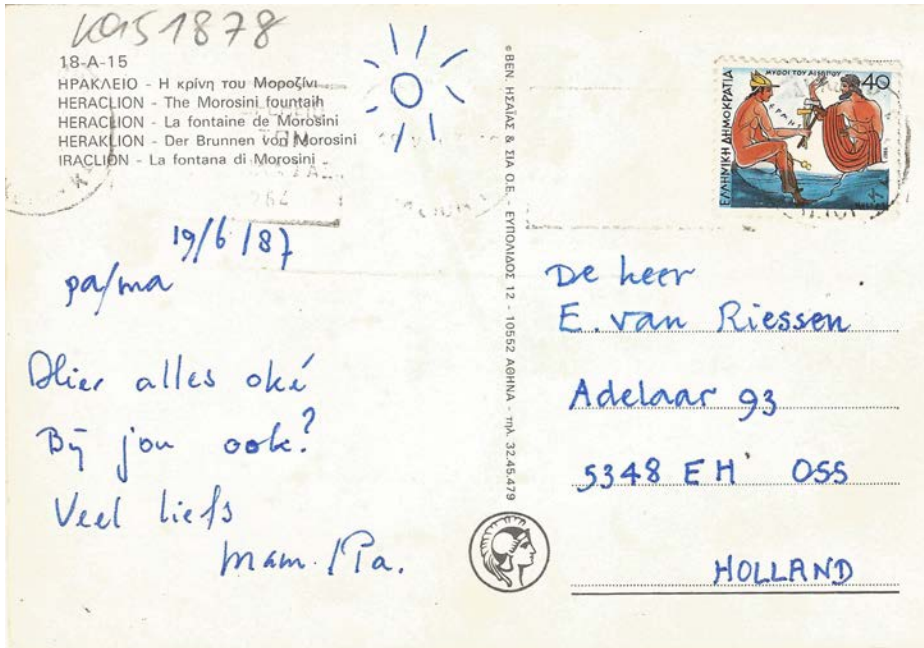 KA51878
18-A-15
ΗΡΑΚΛΕΙΟ - Η κρίνη του Μοροζίνι
HERACLION - The Morosini fountain
HERACLION - La fontaine de Morosini
HERAKLION - Der Brunnen von Morosini
IRACLION - La fontana di Morosini
19/6/87
pa/ma
Hier alles oké
Bij jou ook?
Veel liefs
Mam./Pa.
© ΒΕΝ. ΗΣΑΪΑΣ & ΣΙΑ Ο.Ε. - ΕΥΠΟΛΙΔΟΣ 12 - 10552 ΑΘΗΝΑ - τηλ. 32.45.479
ΜΥΘΟΙ ΤΟΥ ΑΙΣΩΠΟΥ
40
ΕΛΛΗΝΙΚΗ ΔΗΜΟΚΡΑΤΙΑ
ΕΡΜΗΣ
De heer
E. van Riessen
Adelaar 93
5348 EH OSS
HOLLAND